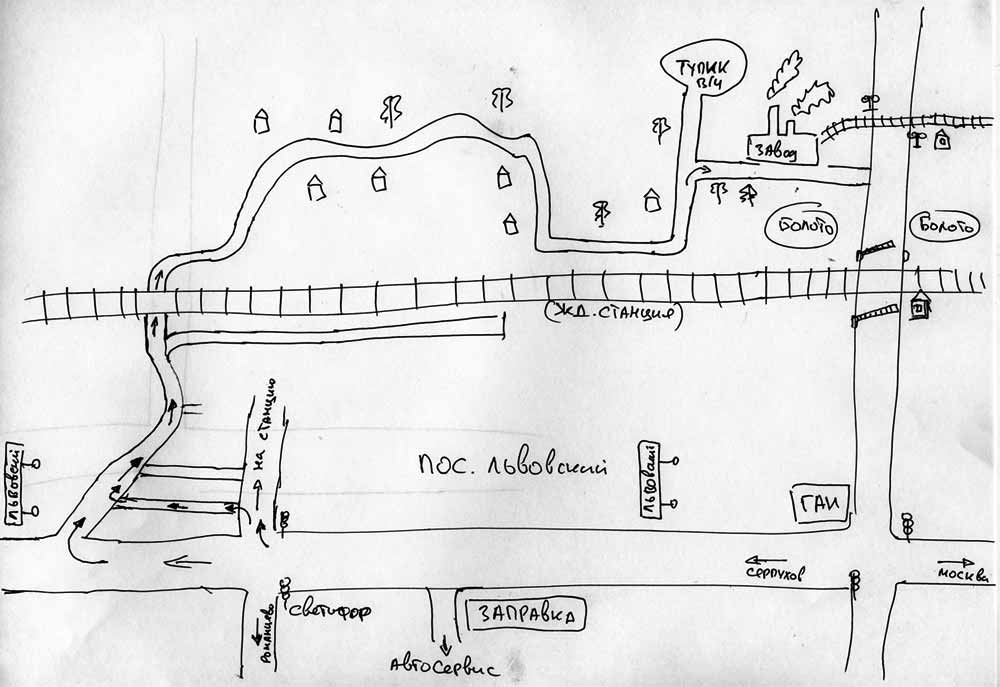 ТУПИК
В/Ч
ЗАВОД
БОЛОТО
БОЛОТО
(Ж.Д. СТАНЦИЯ)
на станцию
ПОС. ЛЬВОВСКИЙ
ЛЬВОВСКИЙ
ЛЬВОВСКИЙ
ГАИ
СЕРПУХОВ
МОСКВА
СВЕТОФОР
ЗАПРАВКА
РОМАНЦЕВО
АВТОСЕРВИС